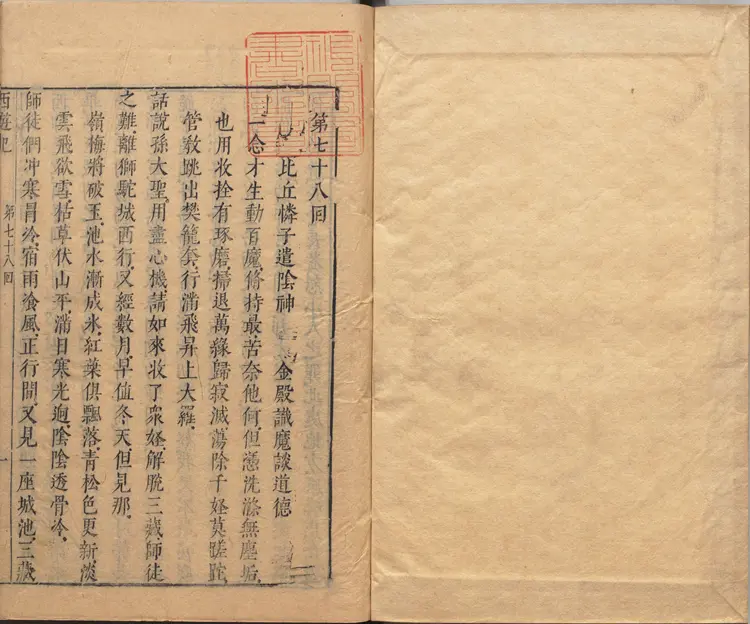 第七十八回
比丘憐子遣陰神 金殿識魔談道德
一念才生動百魔.修持最苦奈他何.但憑洗滌無塵垢.
也用收拴有琢磨.掃退萬緣歸寂滅.蕩除千怪莫蹉跎.
管教跳出樊籠套.行滿飛昇上大羅.
話說孫大聖.用盡心機.請如來收了衆怪.解脫三藏師徒
之難.離獅駝城西行.又經數月.早值冬天.但見那.
嶺梅將破玉.池水漸成氷.紅葉俱飄落.青松色更新.淡
雲飛欲雪.枯草伏山平.滿目寒光迥.陰陰透骨冷.
師徒們冲寒冒冷.宿雨飡風.正行間.又見一座城池.三藏
西遊記 第七十八回 一